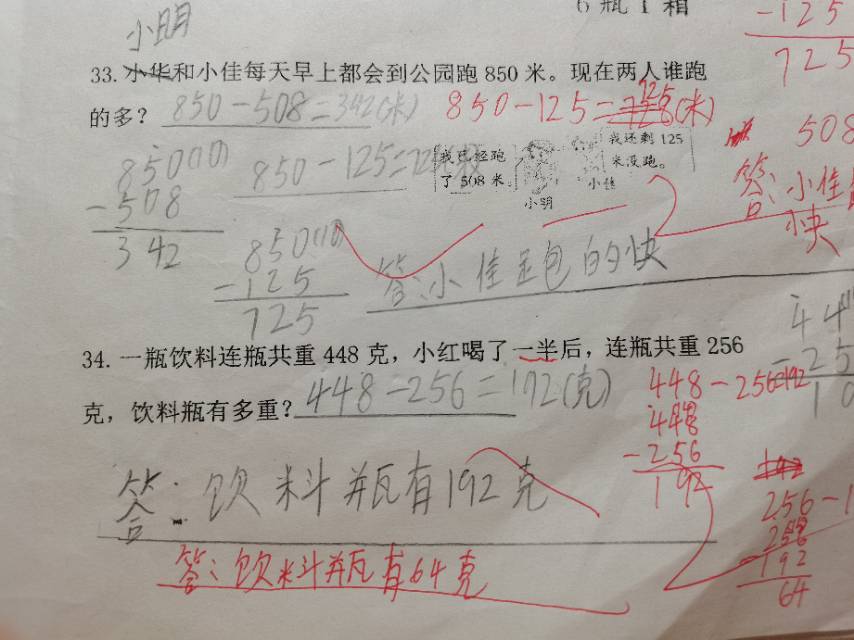 6 瓶 1 箱
-125
725
小明
33. 小华和小佳每天早上都会到公园跑 850 米。现在两人谁跑
的多? 850-508=342(米) 850-125=725(米)
850
-508
342
850-125=
我已经跑
了 508 米。
我还剩 125
米没跑。
小明
小佳
508
答:小佳
快
850
-125
725
答:小佳跑的快
34. 一瓶饮料连瓶共重 448 克,小红喝了一半后,连瓶共重 256
克,饮料瓶有多重? 448-256=192(克)
448-256=192
448
-256
192
答:饮料瓶有192克
256-1
256
-192
64
答:饮料瓶有64克